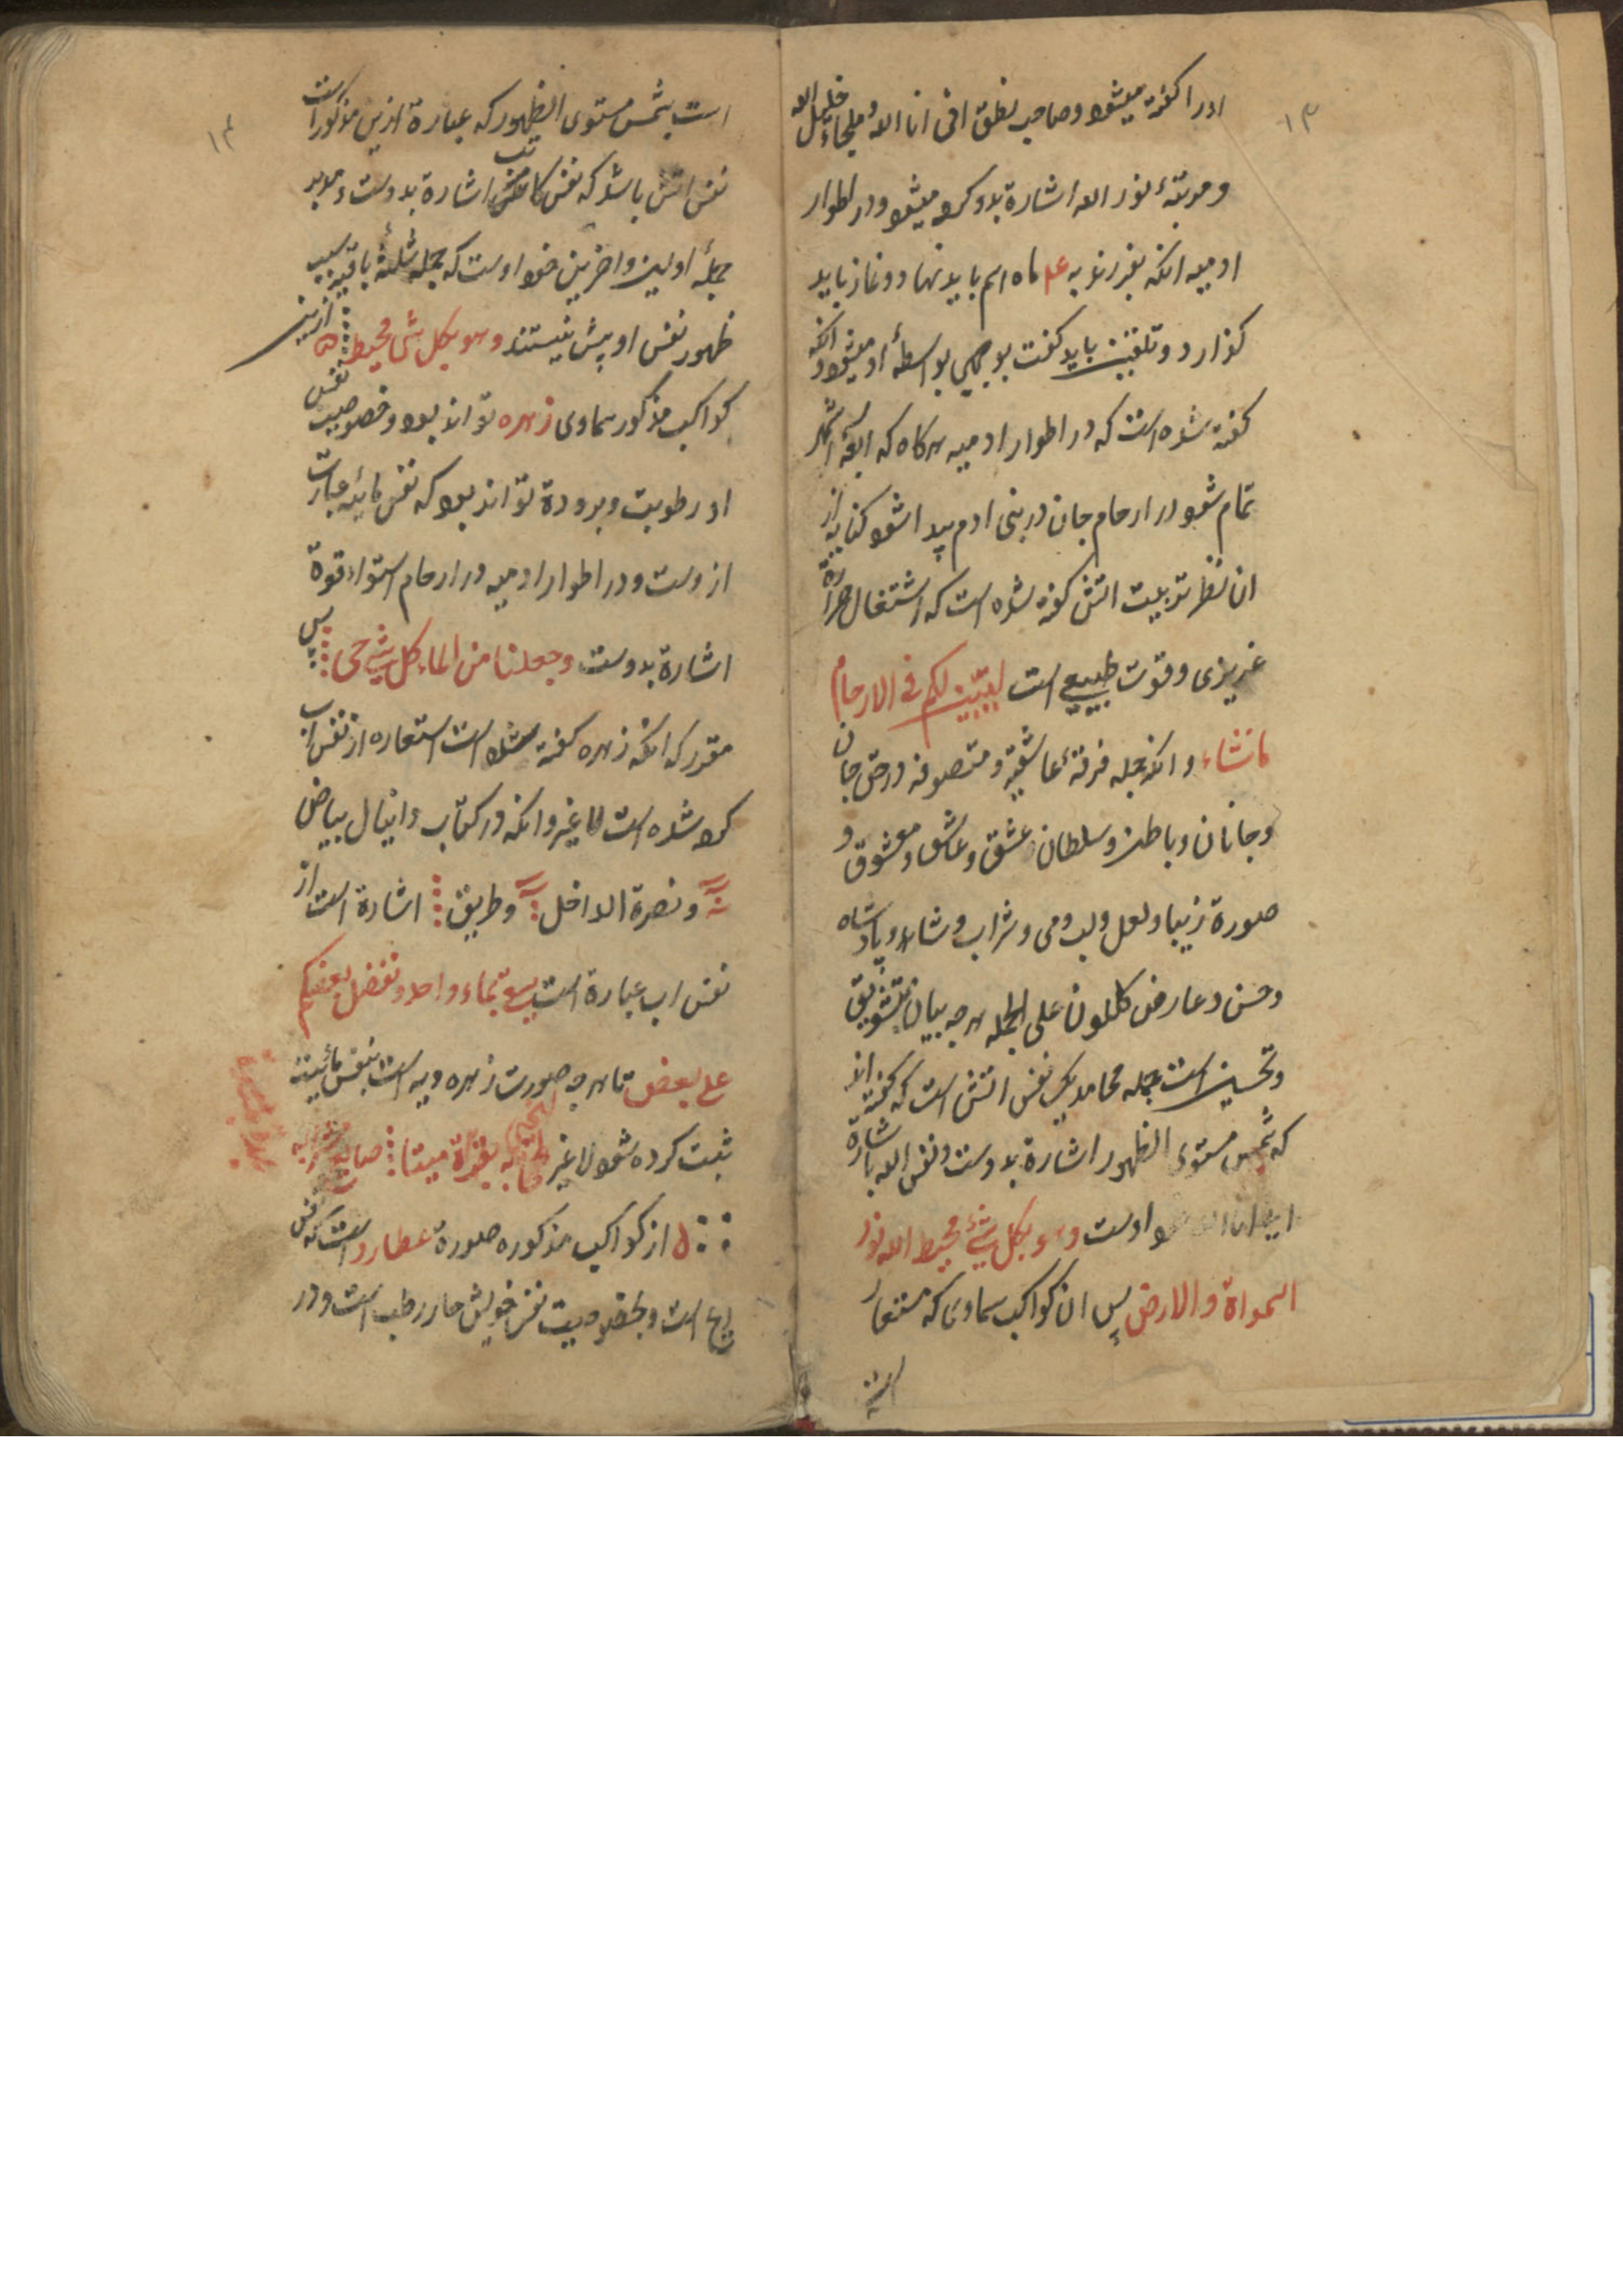 ۱۳
اورا گفته میشود وصاحب نطق انی انا الله وملجاء خلیل الله
ومرتبهٔ نور الله اشارة بدو کرده میشود ودر اطوار
ادمیه انکه بفرزند به ماه اسم باید نهاد ونماز باید
کذارد وتلقین باید کفت بواسطهٔ او میشود وانکه
کفته شده است که در اطوار ادمیه هرکاه که اربعة اشهر
تمام شود در ارحام جان در بنی ادم پیدا شود کنایه از
ان نظر تربیت اتش کفته شده است که اشتغال حرارة
غریزی وقوت طبیعی است لنبین لکم ونقر فی الارحام
ما نشاء وانکه جمله فرقهٔ عاشقیه ومتصوفه در حق جان
وجانان وباطن وسلطان عشق وعاشق ومعشوق و
صورة زیبا ولعل ولب ومی وشراب وشاهد وپادشاه
وحسن وعارض کلکون علی الجمله هرچه بیان تشویق
وتحسین است جمله محامد یک نفس اتش است که کفته اند
که شمس مستوی الظهور اشارة بدوست ونفس الله باشارة
انی انا الله اوست وهو بکل شیء محیط الله نور
السمواة والارض پس ان کواکب سماوی که مستعار
است
۱۴
است بشمس مستوی الظهور که عبارة ازین مذکور است
نفس اتش باشد که نفس کاتب اشارة بدوست وموید
جملهٔ اولین واخرین خود اوست که جمله ثلثهٔ باقیه بسبب
ظهور نفس او پیش نیستند وهو بکل شی محیط ازین
کواکب مذکور سماوی زهره تواند بود وخصوصیت نفس
او رطوبت وبرودة تواند بود که نفس مائیه عبارت
ازوست ودر اطوار ادمیه در ارحام استواء قوة
اشارة بدوست وجعلنا من الماء کل شیء حی پس
مقرر که انکه زهره کفته شده است استعاره از نفس اب
کرده شده است لا غیر وانکه در کتاب دانیال بیاض
ونصرة الداخل وطریق اشارة است از
نفس اب عبارة است یسقی بماء واحد ونفضل بعضکم
علی بعض تا هرچه صورت زهره ویه است بنفس مائیه
ثبت کرده شود لا غیر میتا
از کواکب مذکوره صورة عطارد است که نفس
ریح است وبخصوصیت نفس خویش حار رطب است ودر